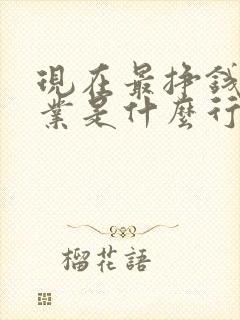 現在最掙錢
業是什麼行
榴花語